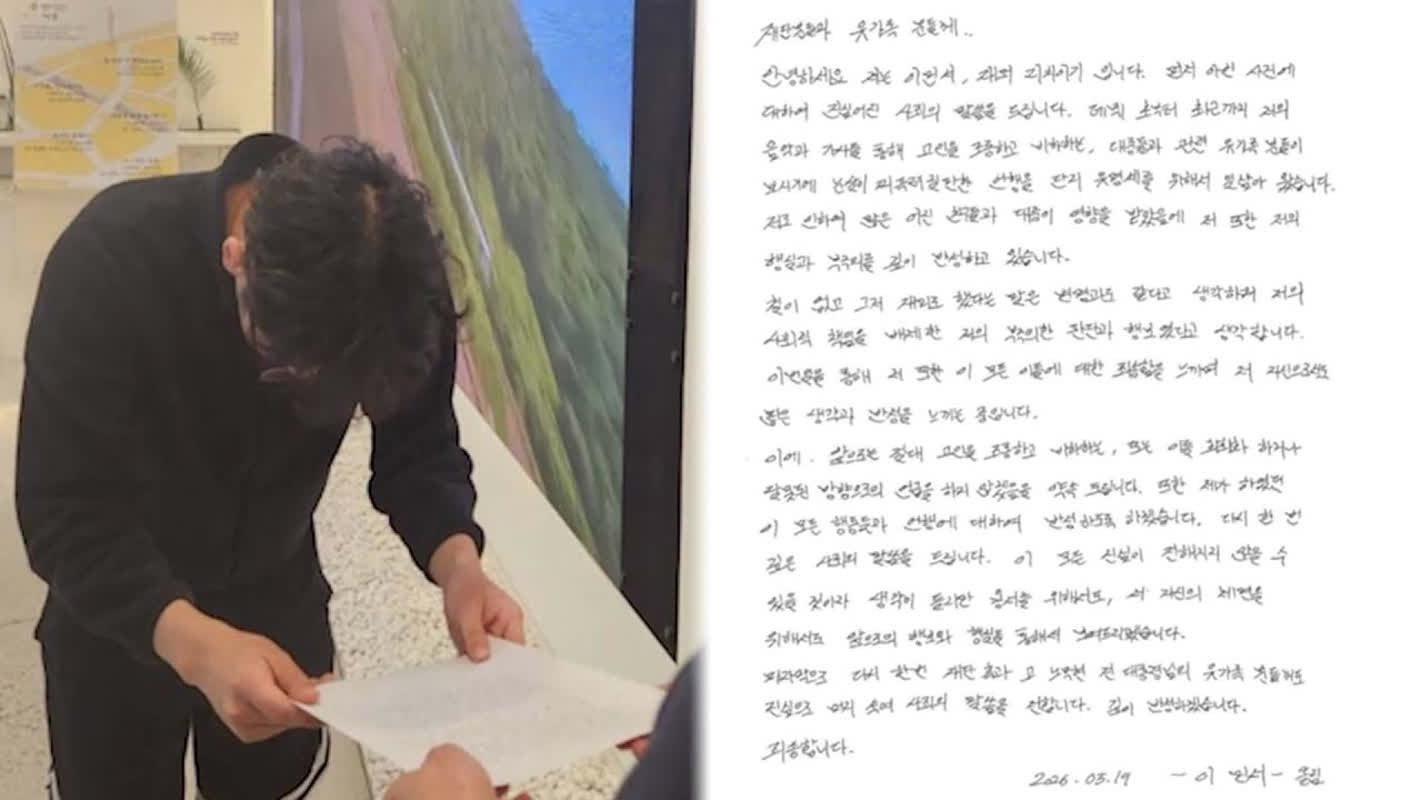 재단분들과 유가족 분들께..
안녕하세요 저는 이민서, 래퍼 리치이기 입니다. 먼저 이번 사건에
대하여 진심어린 사죄의 말씀을 드립니다. 데뷔 초부터 최근까지 저의
음악과 가사를 통해 고인을 조롱하고 비하하는, 대중들과 관련 유가족 분들이
보시기에 눈살이 찌푸려질만한 언행을 단지 유명세를 위해서 일삼아 왔습니다.
저로 인하여 많은 어린 친구들과 대중이 영향을 받았음에 저 또한 저의
행실과 부주의를 깊이 반성하고 있습니다.
철이 없고 그저 재미로 했다는 말은 변명과도 같다고 생각하며 저의
사회적 책임을 배제한 저의 부주의한 판단과 행보였다고 생각합니다.
이번일을 통해 저 또한 이 모든 이들에 대한 죄송함을 느끼며 저 자신으로서도
많은 생각과 반성을 느끼는 중입니다.
이에. 앞으로는 절대 고인을 조롱하고 비하하는, 또는 이를 희화화 하거나
잘못된 방향으로의 언급을 하지 않겠음을 약속 드립니다. 또한 제가 하였던
이 모든 행동들과 언행에 대하여 반성하도록 하겠습니다. 다시 한 번
깊은 사죄의 말씀을 드립니다. 이 모든 진심이 전해지지 않을 수
있을 것이라 생각이 들지만 용서를 위해서도, 저 자신의 내면을
위해서도 앞으로의 행보와 행실을 통해서 보여드리겠습니다.
마지막으로 다시 한번 재단 측과 고 노무현 전 대통령님의 유가족 분들께도
진심으로 머리 숙여 사죄의 말씀을 전합니다. 깊이 반성하겠습니다.
죄송합니다.
2026.03.19 - 이 민서 - 올림